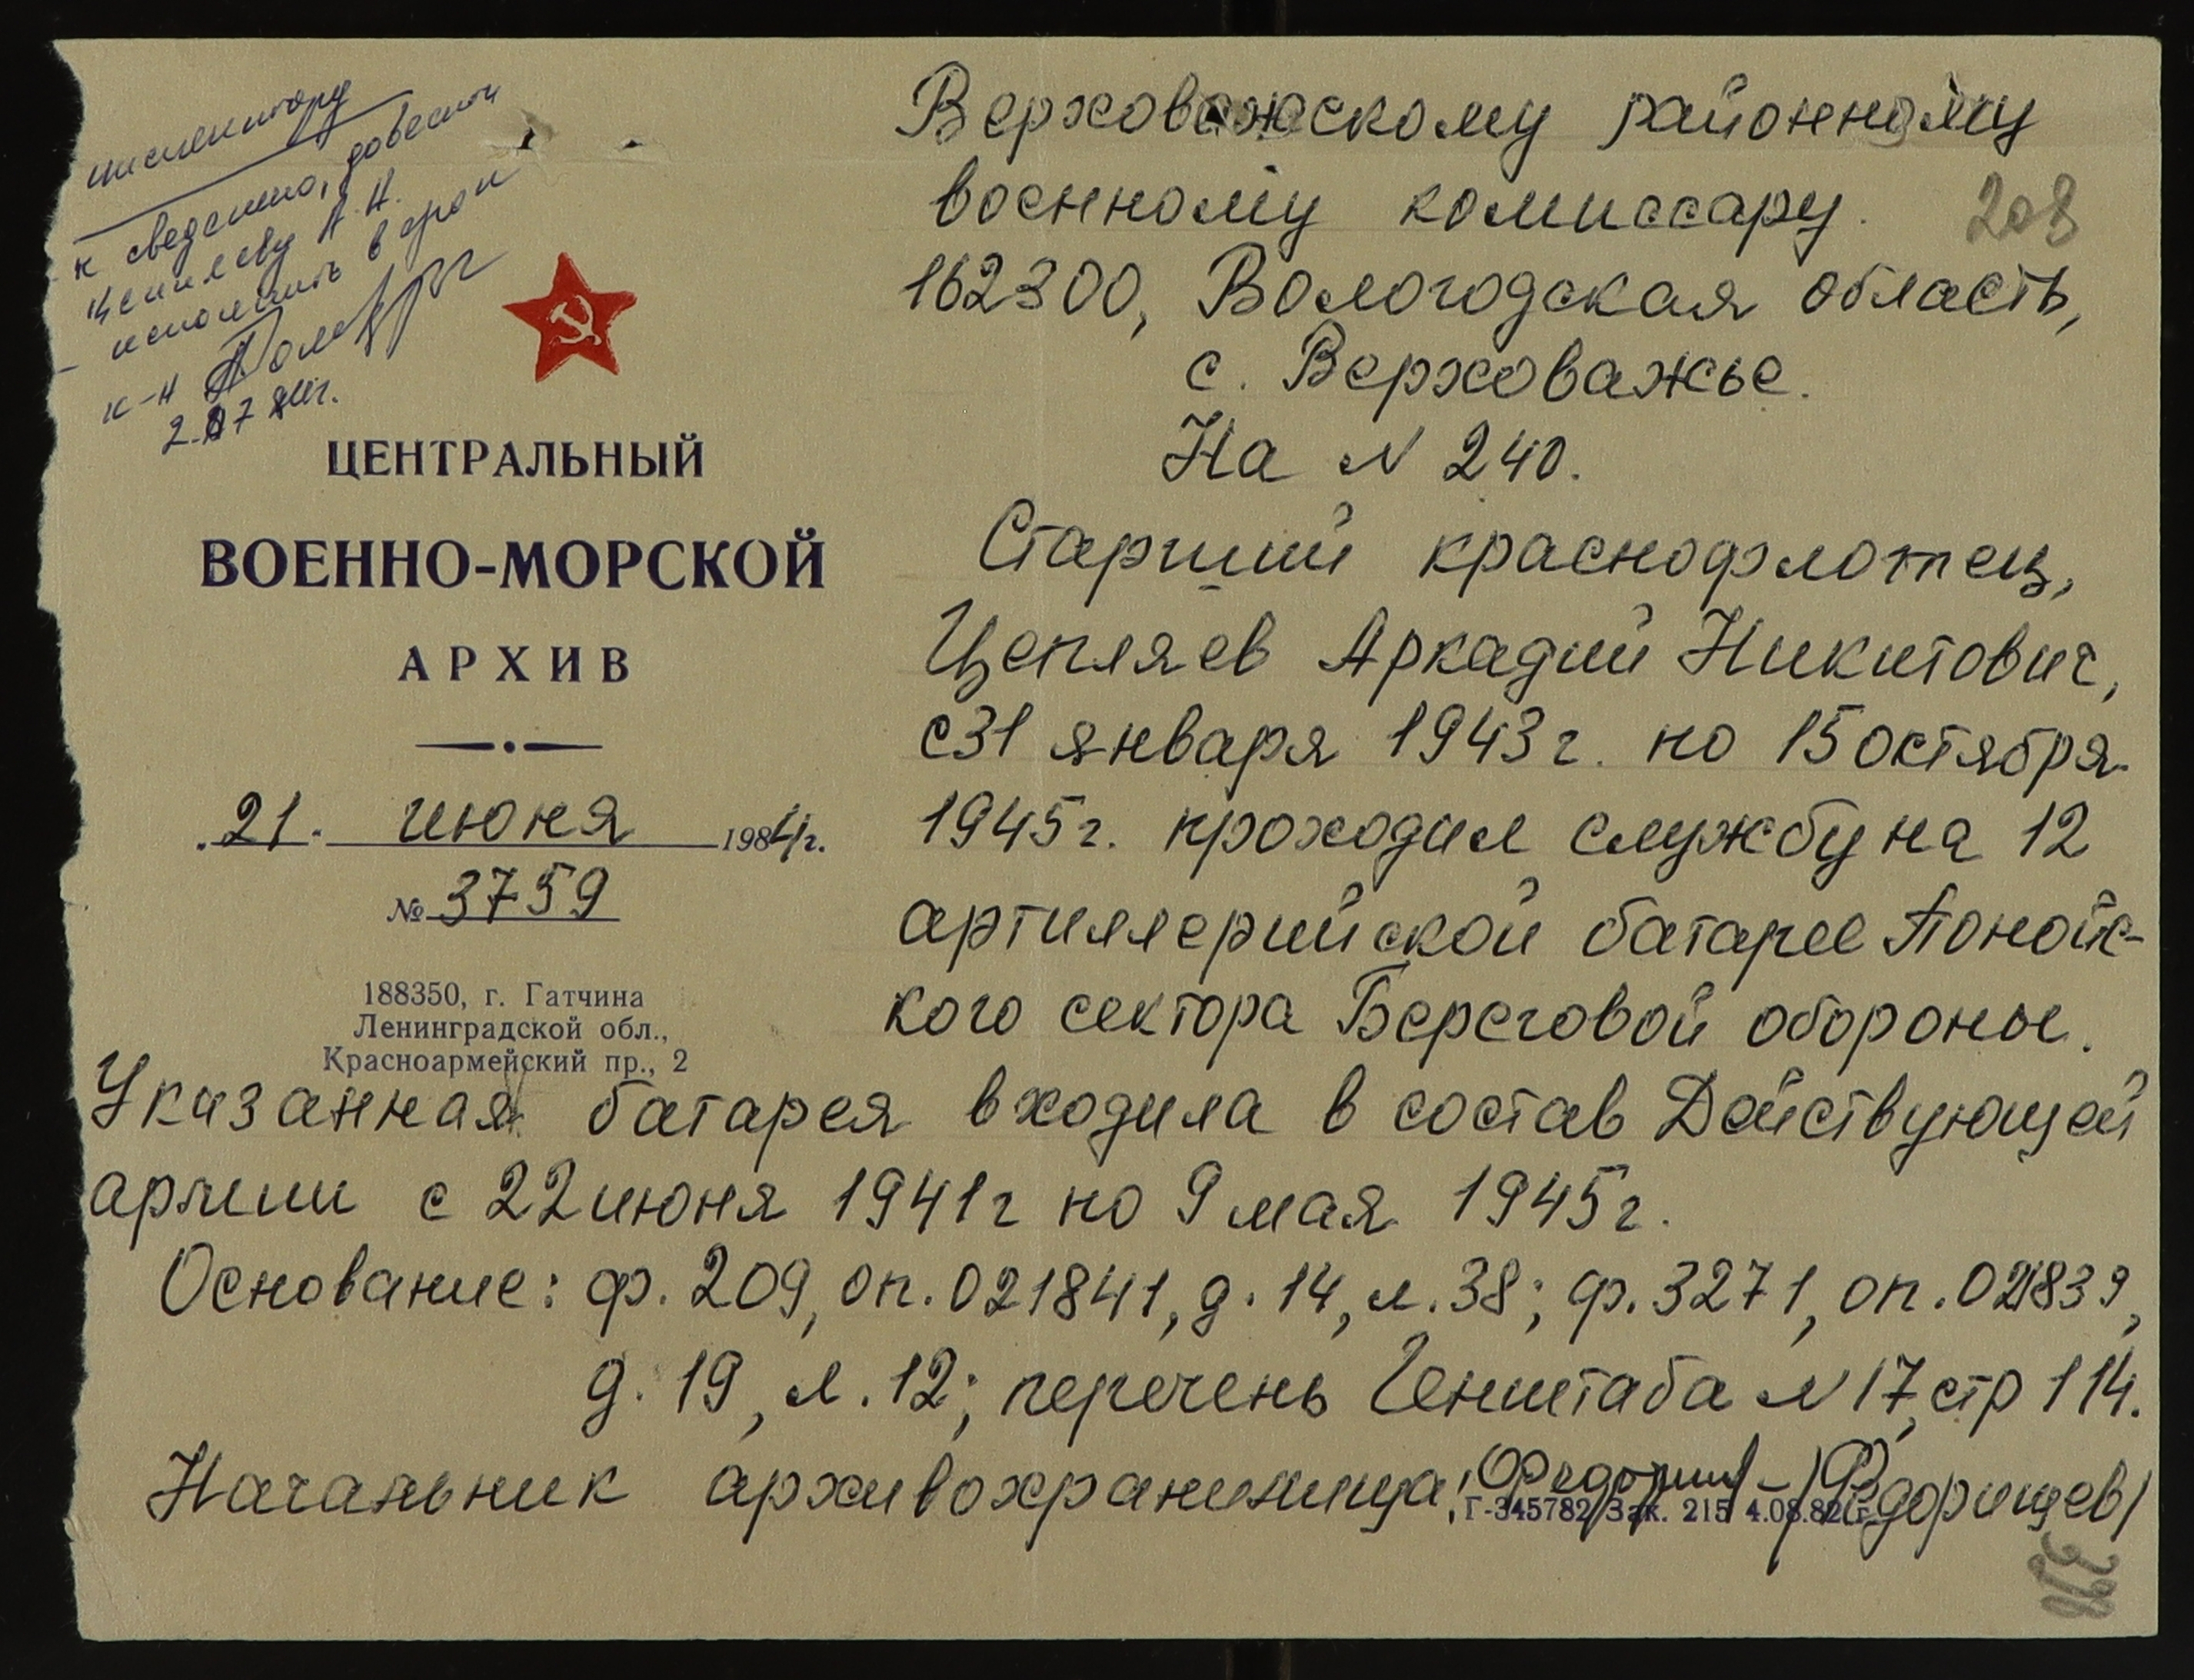 к сведению, довести
Цепляеву А.Н.
исполнить в срок
к-н
ЦЕНТРАЛЬНЫЙ
ВОЕННО-МОРСКОЙ
АРХИВ
21. июня 1984 г.
№ 3759
188350, г. Гатчина
Ленинградской обл.,
Красноармейский пр., 2
Верховажскому районному
военному комиссару.
208
162300, Вологодская область,
с. Верховажье.
На N 240.
Старший краснофлотец,
Цепляев Аркадий Никитович,
с 31 января 1943 г. по 15 октября
1945 г. проходил службу на 12
артиллерийской батарее Понойс-
кого сектора Береговой обороны.
Указанная батарея входила в состав Действующей
армии с 22 июня 1941 г по 9 мая 1945 г.
Основание: ф. 209, оп. 021841, д. 14, л. 38; ф. 3271, оп. 021839,
д. 19, л. 12; перечень Генштаба N 17, стр 114.
Начальник архивохранилища: /Федорищев/
Г-345782 Зак. 215 4.08.82 г.